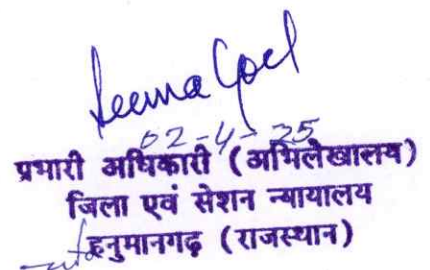 Seema Goel
02-4-25
प्रभारी अधिकारी (अभिलेखालय)
जिला एवं सेशन न्यायालय
हनुमानगढ़ (राजस्थान)